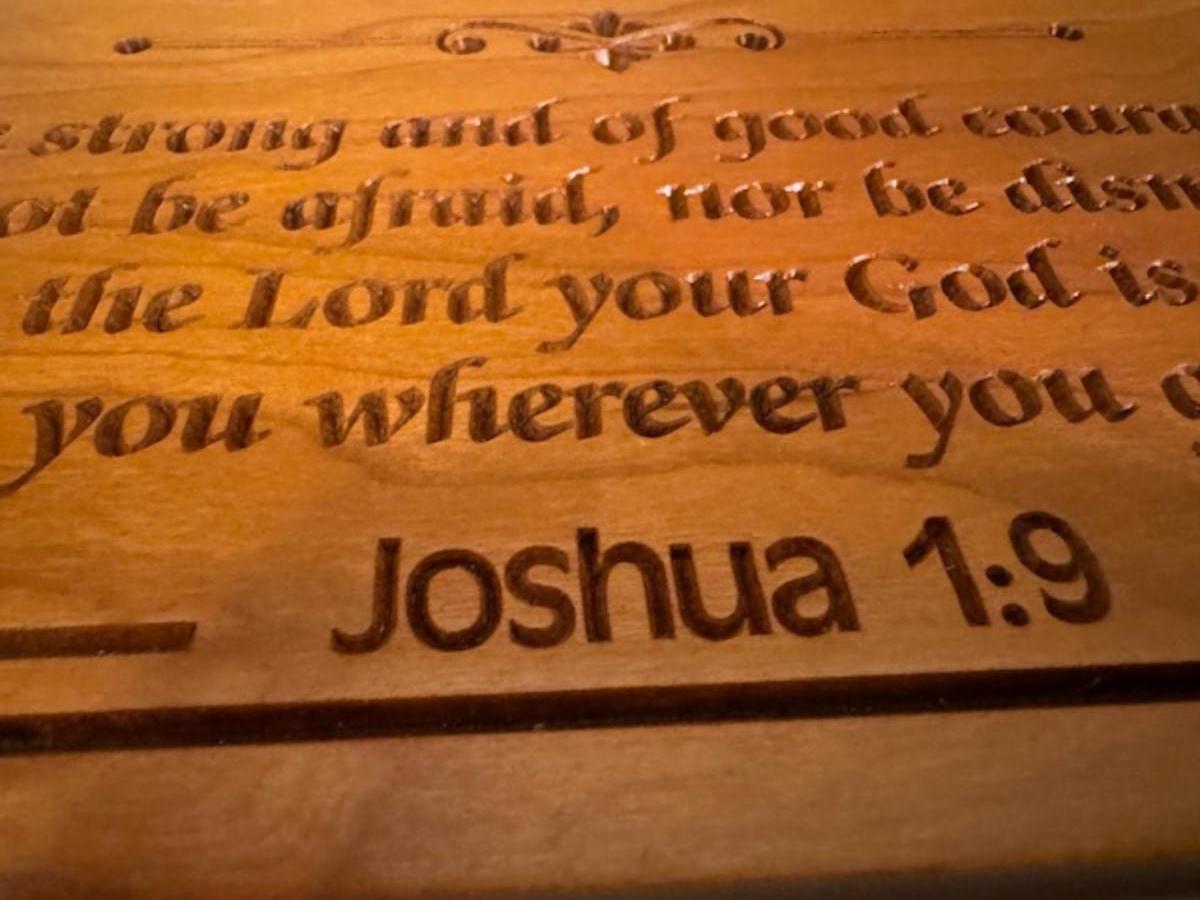 strong and of good
be afraid, nor be
the Lord your God is
you wherever you
Joshua 1:9